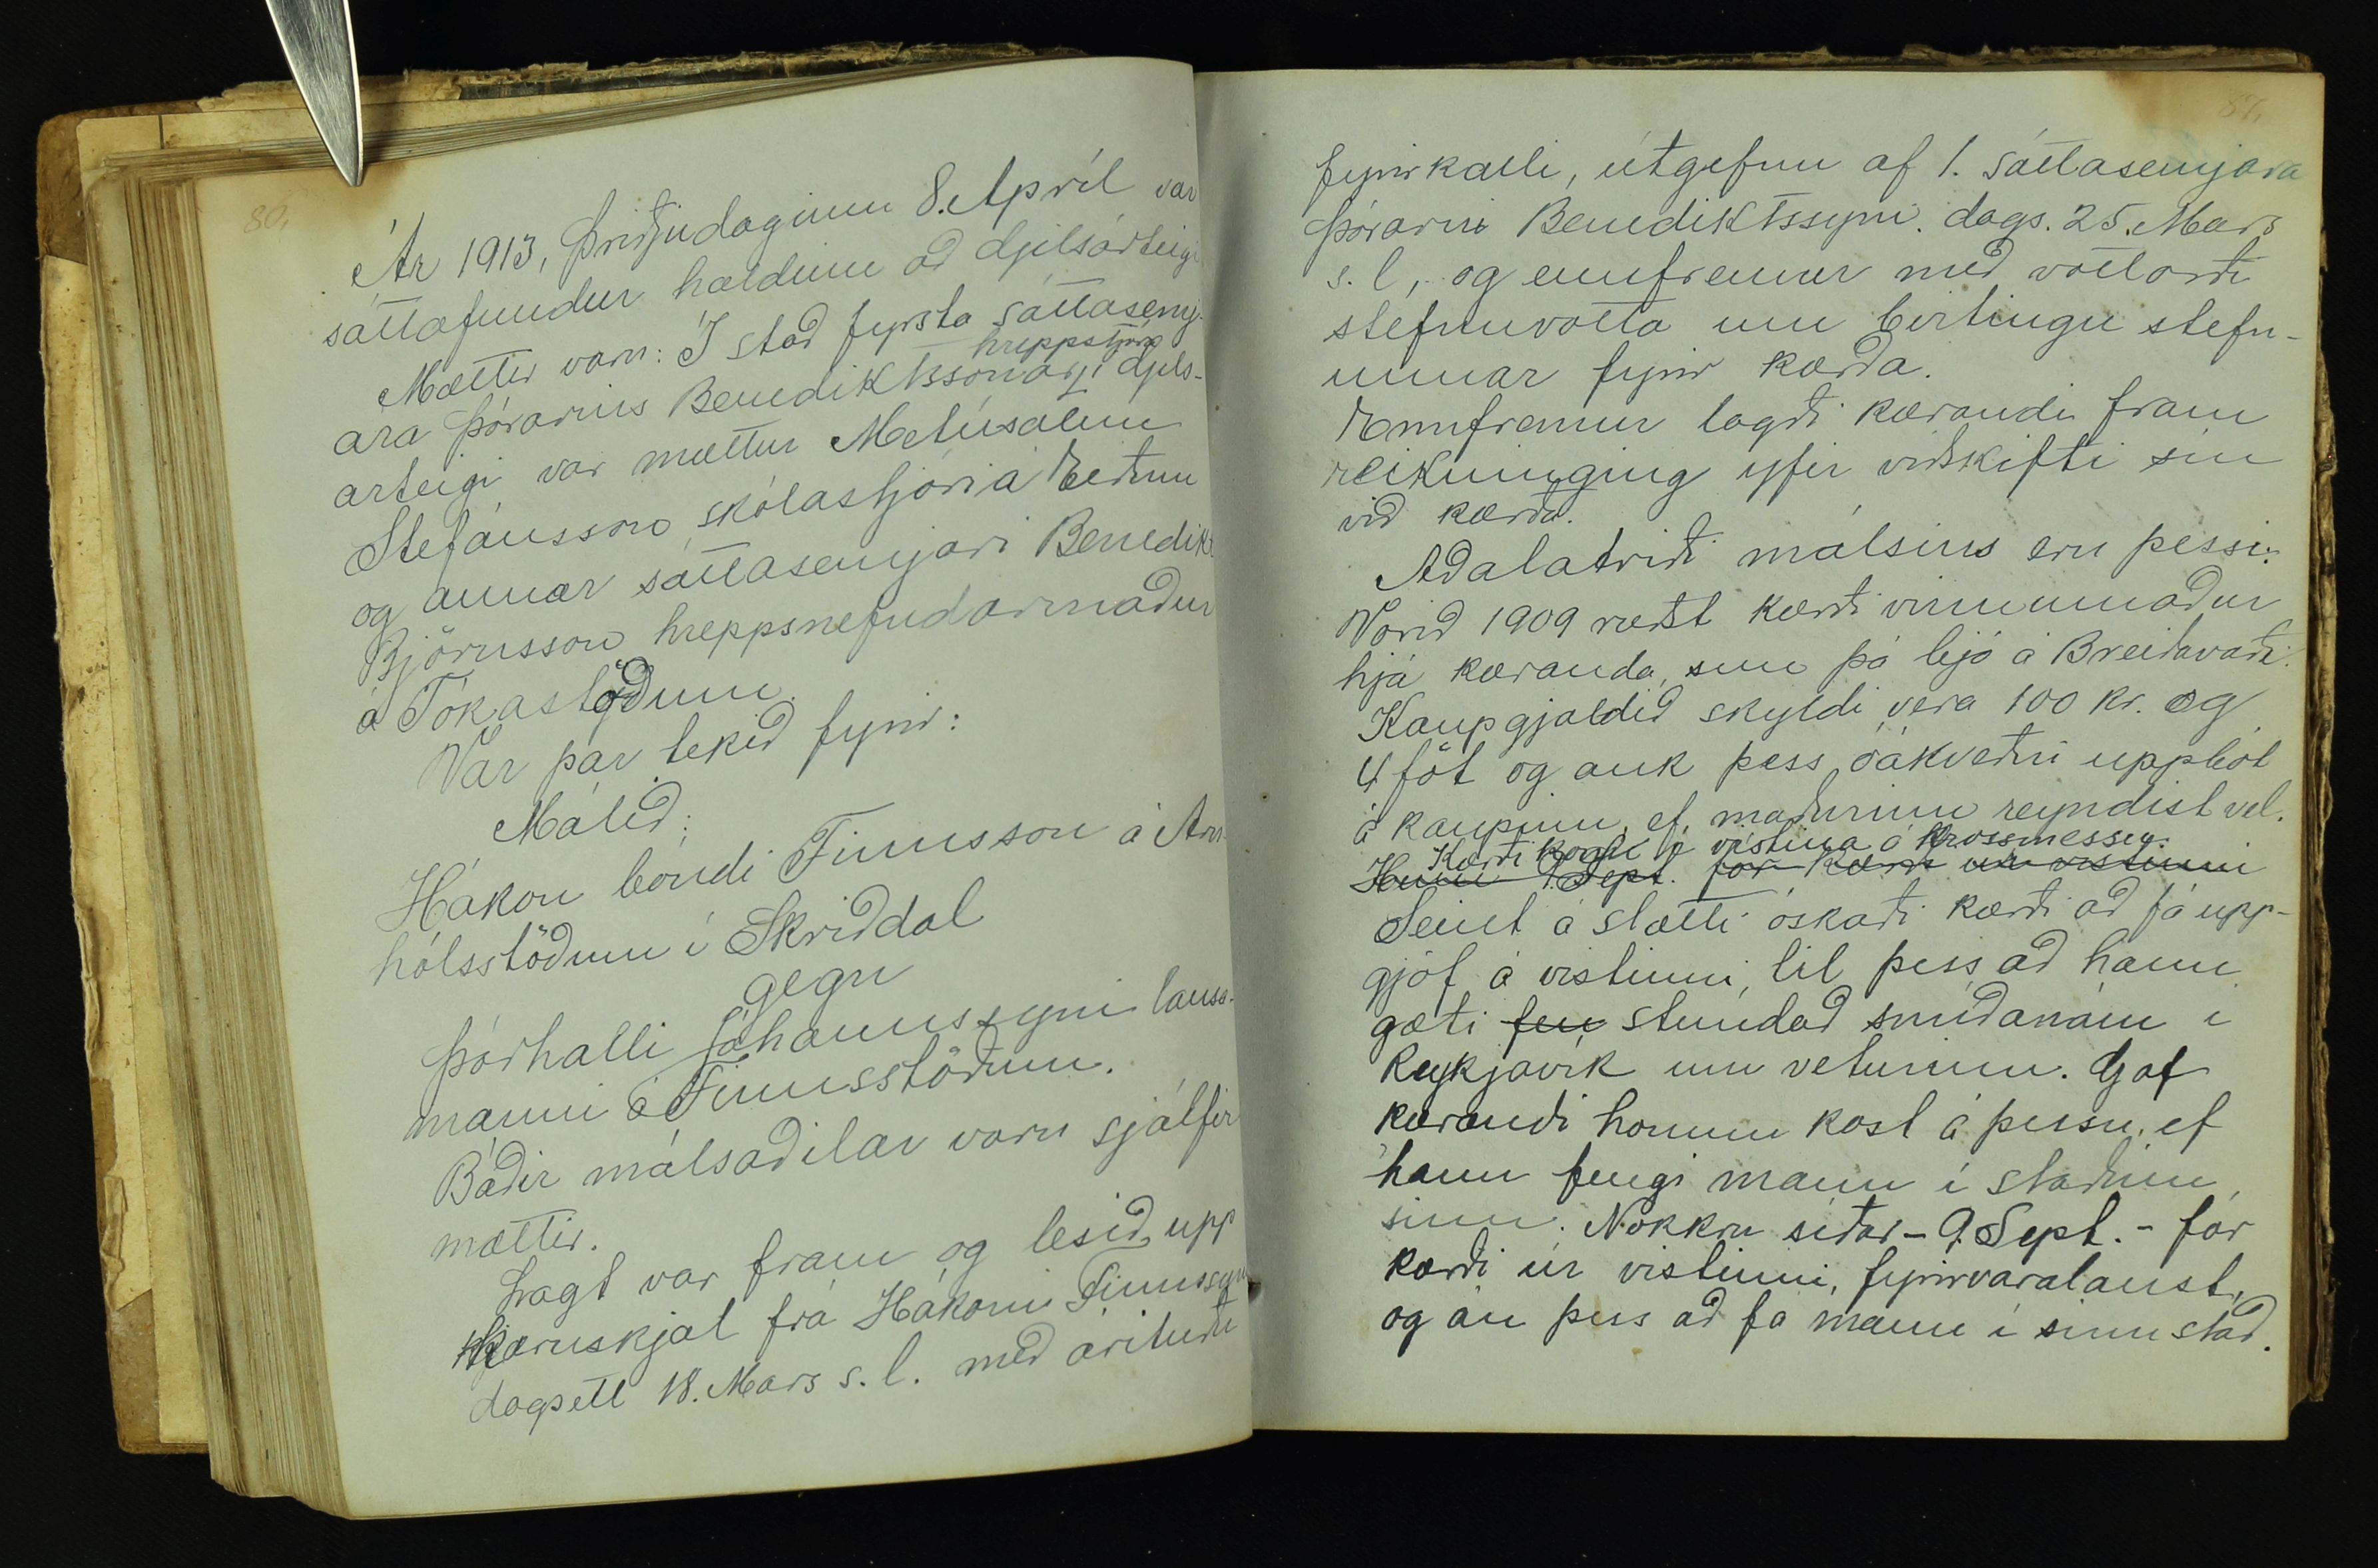 80.
Ár 1913, Þriðjudaginn 8. Apríl var
sáttafundur haldinn að Gilsárteigi
Mættir voru: Í stað fyrsta sáttasemj-
hreppstjóra
ara Þórarins Benediktssonar, Gils-
árteigi var mættur Metúsalem
Stefánsson skólastjóri á Eiðum
og annar sáttasemjari Benedikt
Björnsson hreppsnefndarmaður
á Tókastöðum.
Var þar tekið fyrir:
Málið:
Hákon bóndi Finnsson á Arn-
hólsstöðum í Skriðdal
gegn
Þórhalli Jóhannssyni lauss-
manni á Finnsstöðum.
Báðir málsaðilar voru sjálfir
mættir.
Lagt var fram og lesið upp
kæruskjal frá Hákoni Finnssyni
dagsett 18. Mars s.l. með árituðu
87.
fyrirkalli, útgefnu af 1. sáttasemjara
Þórarni Benediktssyni. dags. 25. Mars
s. l, og ennfremur með vottorði
stefnuvotta um birtingu stefn-
unnar fyrir kærða.
Ennfremur lagði kærandi fram
reikninging yfir viðskifti sín
við kærða.
Aðalatriði málsins eru þessi:
Vorið 1909 ræðst kærði vinnumaður
hjá kæranda, sem þá bjó á Breiðavaði.
Kaupgjaldið skyldi vera 100 kr. og
4 föt og auk þess óákveðin uppbót
á kaupinu, ef maðurinn reyndist vel.
Kærði kom í vistina á Krossmessu.
Hinn 9. Sept. fór kærði úr vistinni
Seint á slætti óskaði kærði að fá upp-
gjöf á vistinni, til þess að hann
gæti fen stundað smíðanám í
Reykjavík um veturinn. Gaf
kærandi honum kost á þessu, ef
hann fengi mann í staðinn
sinn. Nokkru síðar - 9. Sept. - fór
kærði úr vistinni, fyrirvaralaust,
og án þess að fá mann í sinn stað.